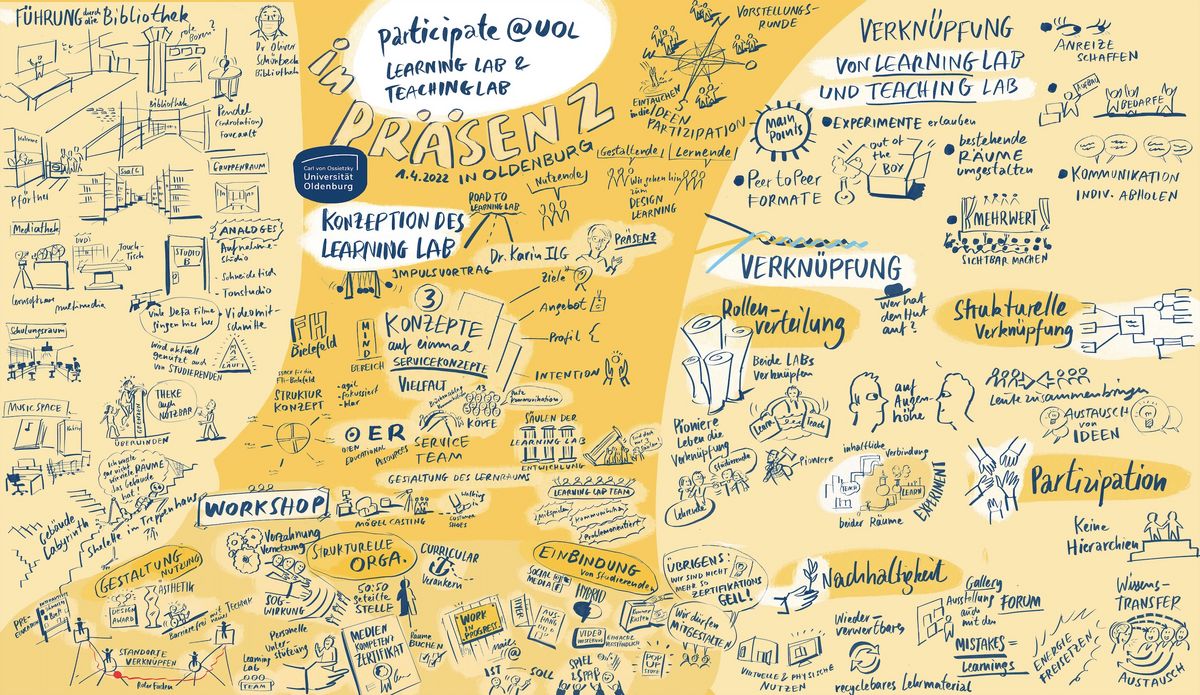 FÜHRUNG durch die Bibliothek
rote Boxen?
Dr. Oliver
Schönbeck
Bibliothek
Bibliothek
Pendel
(Erdrotation)
Foucault
Pförtner
GRUPPENRAUM
Mediathek
DVD
Touch-
Tisch
STUDIO
B
ANALOGES
Aufnahme-
Studio
- Schneidetisch
- Tonstudio
- Videomit-
schnitte
Lernsoftware
multimedia
Viele Defa Filme
gingen hier
Schulungsraum
Wird aktuell
genutzt auch
von STUDIERENDEN
MAZ
LÄUFT
MUSIC SPACE
GRENZEN
ÜBERWINDEN
THEKE
auch
NUTZBAR
Ich wusste
gar nicht
wieviele RÄUME
das Gebäude
hat!
Gebäude
Labyrinth
Skelette im Treppenhaus
participate @UOL
LEARNING LAB &
TEACHING LAB
in PRÄSENZ
1.4.2022 IN OLDENBURG
Carl von Ossietzky
Universität
Oldenburg
VORSTELLUNGS-
RUNDE
EINTAUCHEN
in die IDEEN
PARTIZIPATION
Gestaltende
Lernende
Nutzende
Wir gehen hin
zum
DESIGN
LEARNING
ROAD TO
LEARNING LAB
KONZEPTION DES
LEARNING LAB
Dr. Karin ILG
PRÄSENZ
IMPULSVORTRAG
3
KONZEPTE
auf einmal
SERVICEKONZEPTE
Ziele
Angebot
Profil
INTENTION
FH
Bielefeld
MINDBEREICH
STRUKTUR
KONZEPT
- agil
- fokussiert
- klar
VIELFALT
13
KÖPFE
gute
Kommunikation
OER
OPEN
EDUCATIONAL
RESOURCES
SERVICE
TEAM
SÄULEN DER
LEARNING LAB
ENTWICKLUNG
GESTALTUNG DES LERNRAUMS
MÖBELCASTING
Walking
CUSTOMER
SHOES
LEARNING LAB TEAM
Mitspielen
Kommunikation
Problemorientiert
WORKSHOP
GESTALTUNG
NUTZUNG
Verzahnung
Vernetzung
STRUKTURELLE
ORGA.
CURRICULAR
Verankern
EINBINDUNG
von Studierenden
ÄSTHETIK
DESIGN
AWARD
Barrierefrei
mit Technik
SOG-
WIRKUNG
50:50
geteilte
STELLE
SOCIAL
MEDIA
HYBRID
STANDORTE
VERKNÜPFEN
Roter Faden
Personelle
Unterstützung
Learning
Lab
TEAM
MEDIEN
KOMPETENZ
ZERTIFIKAT
Räume
BUCHEN
WORK
IN
PROGRESS
FLYER
AUS
HANG
Mails
VIDEO
KONFERENZ
EINFACH
VERSTÄNDLICH
Wir dürfen
MITGESTALTEN
IST
SOLL
SPIEL
& SPAß
POP
UP
STORE
ÜBRIGENS:
WIR SIND NICHT
MEHR SO
ZERTIFIKATIONS
GEIL!
VERKNÜPFUNG
VON LEARNING LAB
UND TEACHING LAB
Main
Points
EXPERIMENTE erlauben
OUT OF
THE
BOX
Peer to Peer
FORMATE
bestehende
RÄUME
umgestalten
MEHRWERT
SICHTBAR MACHEN
ANREIZE
SCHAFFEN
AUFBAU
BEDARFE
KOMMUNIKATION
INDIV. ABHOLEN
VERKNÜPFUNG
Rollen-
verteilung
Wer hat
den Hut
auf?
Strukturelle
Verknüpfung
Beide LABS
verknüpfen
Learn
Teach
auf
Augen-
höhe
Leute zusammenbringen
AUSTAUSCH
von
IDEEN
Pioniere
Leben die
Verknüpfung
Studierende
Lehrende
Pioniere
inhaltliche
Verbindung
TEACH
LEARN
beider Räume
EXPERIMENT
Partizipation
Keine
Hierarchien
Nachhaltigkeit
VIRTUELLE & PHYSISCHE
NUTZEN
Wieder
verwertbares
recyclebares Lehrmaterial
Gallery
Ausstellung
auch mit
den
FORUM
MISTAKES =
Learnings
ENERGIE
FREISETZEN
Wissens-
TRANSFER
AUSTAUSCH